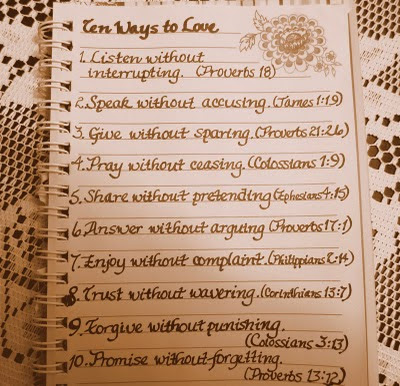 Ten Ways to Love
1. Listen without
interrupting. (Proverbs 18)
2. Speak without accusing. (James 1:19)
3. Give without sparing. (Proverbs 21:26)
4. Pray without ceasing. (Colossians 1:9)
5. Share without pretending (Ephesians 4:15)
6. Answer without arguing (Proverbs 17:1)
7. Enjoy without complaint. (Philippians 2:14)
8. Trust without wavering. (Corinthians 13:7)
9. Forgive without punishing.
(Colossians 3:13)
10. Promise without forgetting.
(Proverbs 13:12)